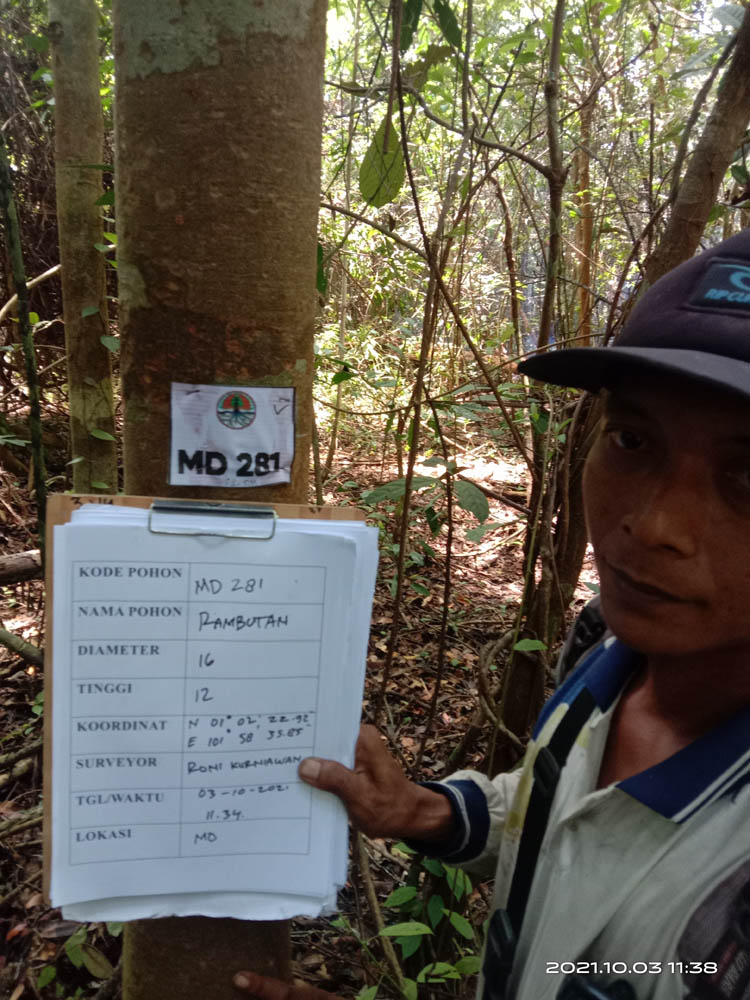 RIP CU
MD 281
KODE POHON MD 281
NAMA POHON RAMBUTAN
DIAMETER 16
TINGGI 12
KOORDINAT N 01° 02' 22.92"
E 101° 58' 35.85"
SURVEYOR RONI KURNIAWAN
TGL/WAKTU 03-10-2021
11.34.
LOKASI MD
2021.10.03 11:38